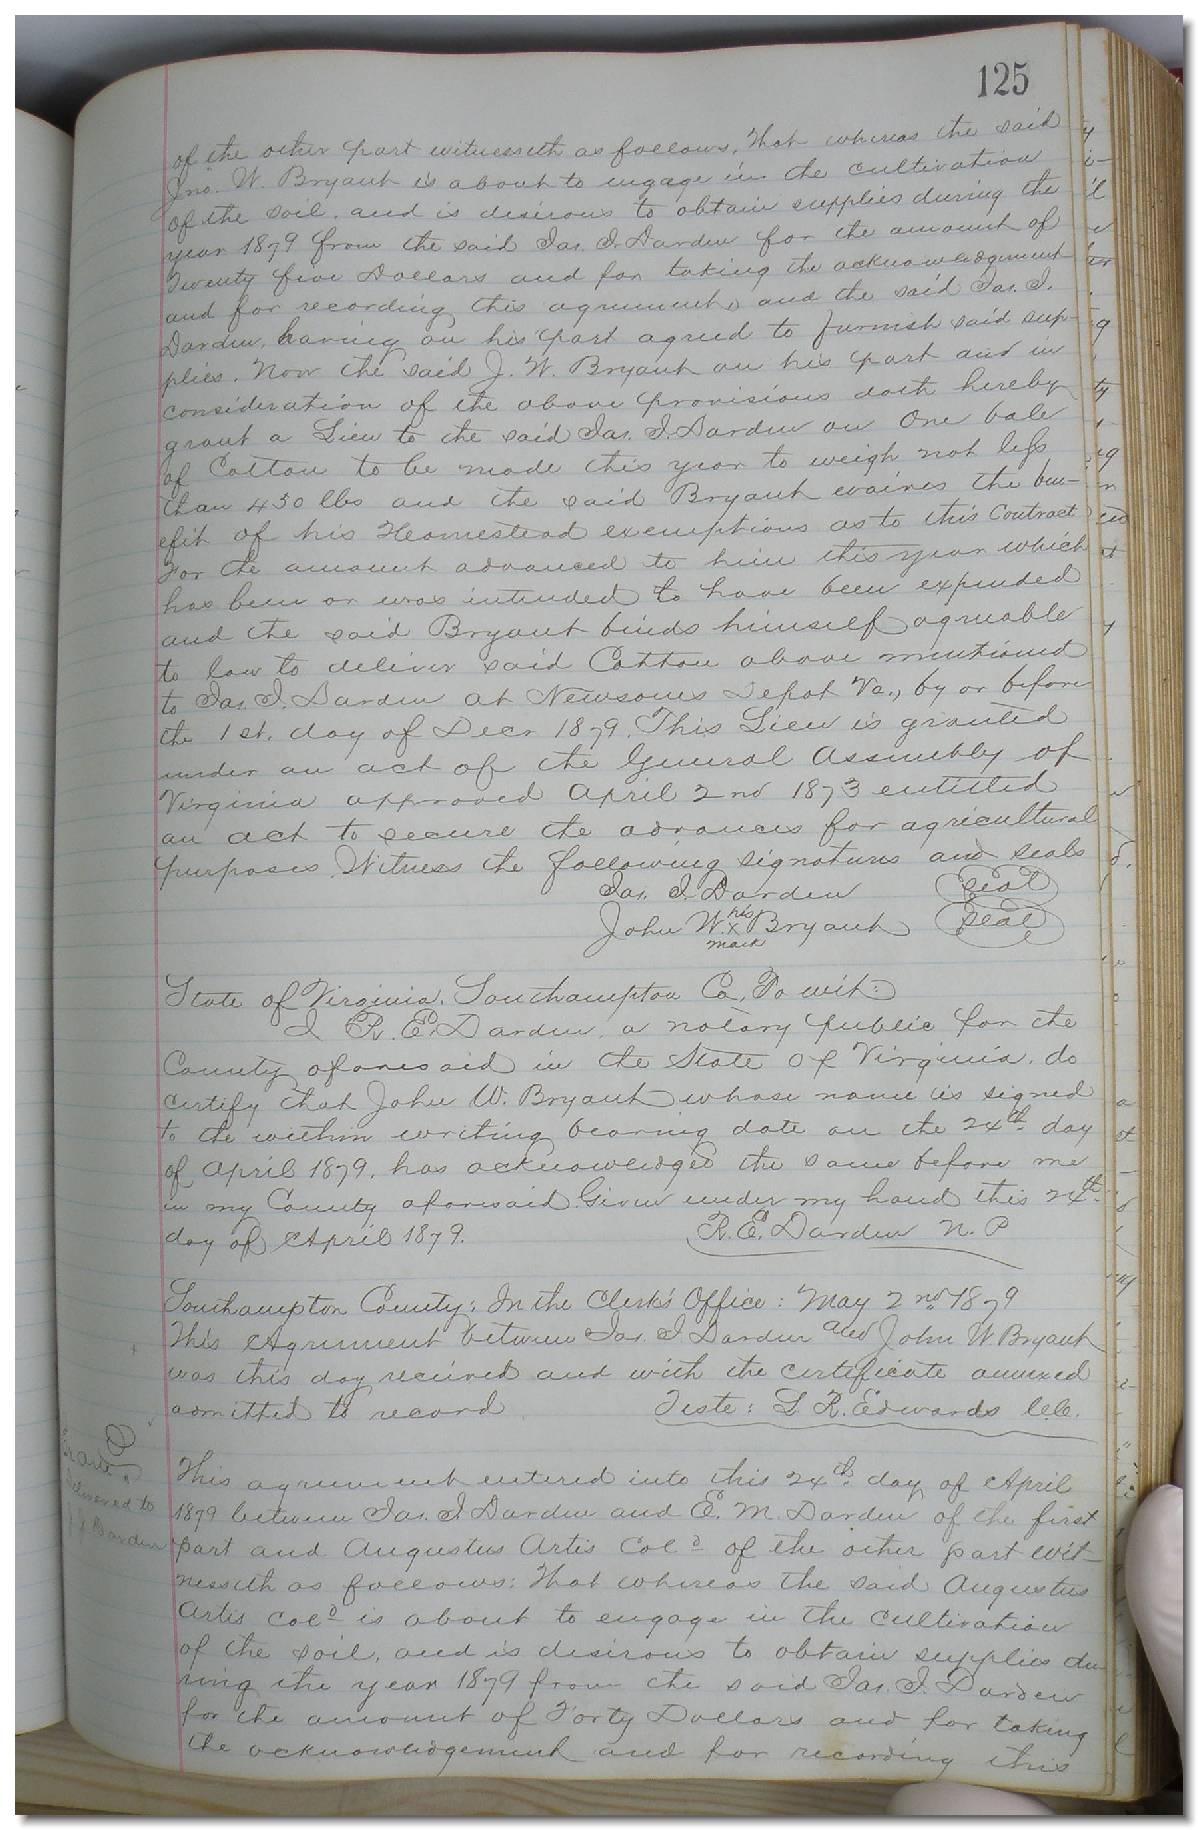 125
of the other part witnesseth as follows, That whereas the said
Jno. W. Bryant is about to engage in the cultivation
of the soil, and is desirous to obtain supplies during the
year 1879 from the said Jas. I. Darden for the amount of
Twenty five Dollars and for taking the acknowledgment
and for recording this agreement, and the said Jas. I.
Darden, having on his part agreed to furnish said sup-
plies. Now the said J. W. Bryant on his part and in
consideration of the above provisions doth hereby
grant a Lien to the said Jas. I. Darden on One bale
of Cotton to be made this year to weigh not less
than 450 lbs and the said Bryant waives the ben-
efit of his Homestead exemptions as to this Contract
For the amount advanced to him this year which
has been or was intended to have been expended
and the said Bryant binds himself agreeable
to law to deliver said Cotton above mentioned
to Jas. I. Darden at Newsoms Depot Va., by or before
the 1st. day of Decr 1879. This Lien is granted
under an act of the General Assembly of
Virginia approved April 2nd 1873 entitled
an act to secure the advances for agricultural
purposes. Witness the following signatures and seals
Jas. I. Darden Seal
John W. his x mark Bryant Seal
State of Virginia. Southampton Co. To wit:
I R. E. Darden, a notary public for the
County aforesaid in the State of Virginia, do
certify that John W. Bryant whose name is signed
to the within writing bearing date on the 24th day
of April 1879, has acknowledged the same before me
in my County aforesaid. Given under my hand this 24th
day of April 1879. R. E. Darden N. P
Southampton County: In the Clerk's Office: May 2nd 1879
This Agreement between Jas. I Darden and John W Bryant
was this day received and with the certificate annexed
admitted to record. Teste: L. R. Edwards C.C.
delivered to
Darden
This agreement entered into this 24th day of April
1879 between Jas. I Darden and E. M. Darden of the first
part and Augustus Artis Cold of the other part wit-
nesseth as follows: That whereas the said Augustus
Artis Cold is about to engage in the cultivation
of the soil, and is desirous to obtain supplies du-
ring the year 1879 from the said Jas. I. Darden
for the amount of Forty Dollars and for taking
the acknowledgement and for recording this